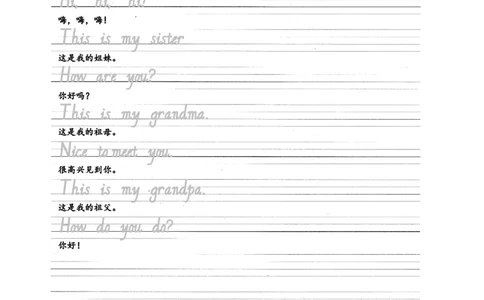 Hi, hi, hi!
嗨，嗨，嗨！
This is my sister
这是我的姐妹。
How are you?
你好吗？
This is my grandma.
这是我的祖母。
Nice to meet you.
很高兴见到你。
This is my grandpa.
这是我的祖父。
How do you do?
你好！